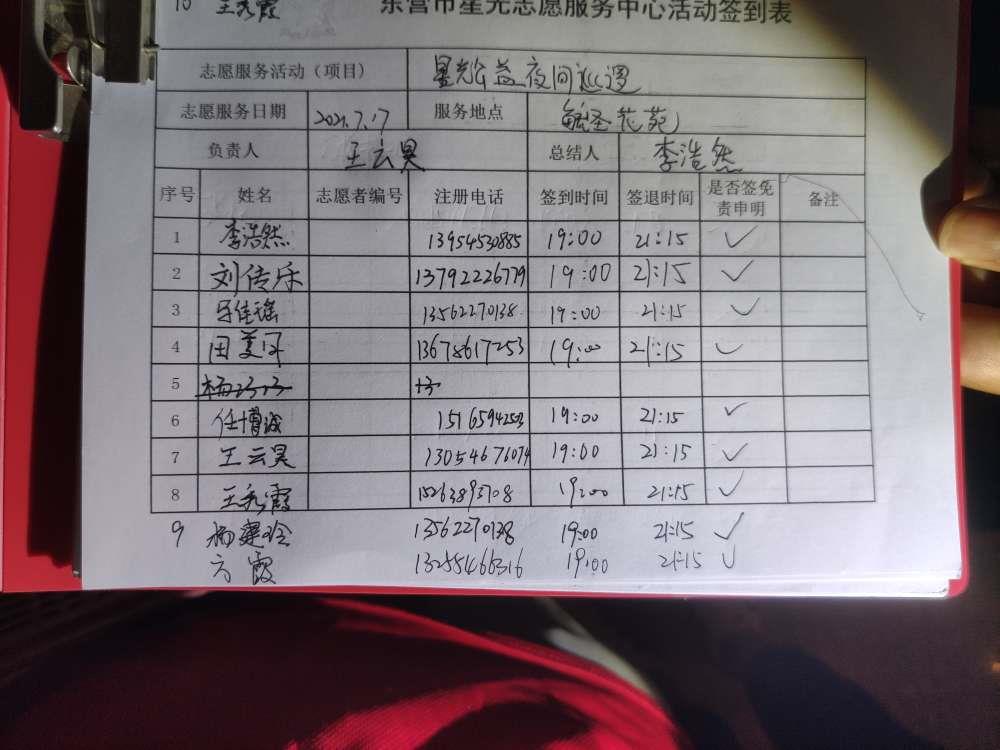 10 王秀霞
东营市星光志愿服务中心活动签到表
志愿服务活动（项目） 星光公益夜间巡逻
志愿服务日期 2021.7.17 服务地点 花苑
负责人 王云昊 总结人 李浩然
序号 姓名 志愿者编号 注册电话 签到时间 签退时间 是否签免责申明 备注
1 李浩然 13954530885 19:00 21:15 ✓
2 刘传乐 13792226779 19:00 21:15 ✓
3 佳瑶 13562270138 19:00 21:15 ✓
4 田美 13678617253 19:00 21:15 ✓
5
6 任博 19:00 21:15 ✓
7 王云昊 13054676074 19:00 21:15 ✓
8 王秀霞 15263893708 19:00 21:15 ✓
9 杨建玲 13562270138 19:00 21:15 ✓
方霞 13255466316 19:00 21:15 ✓